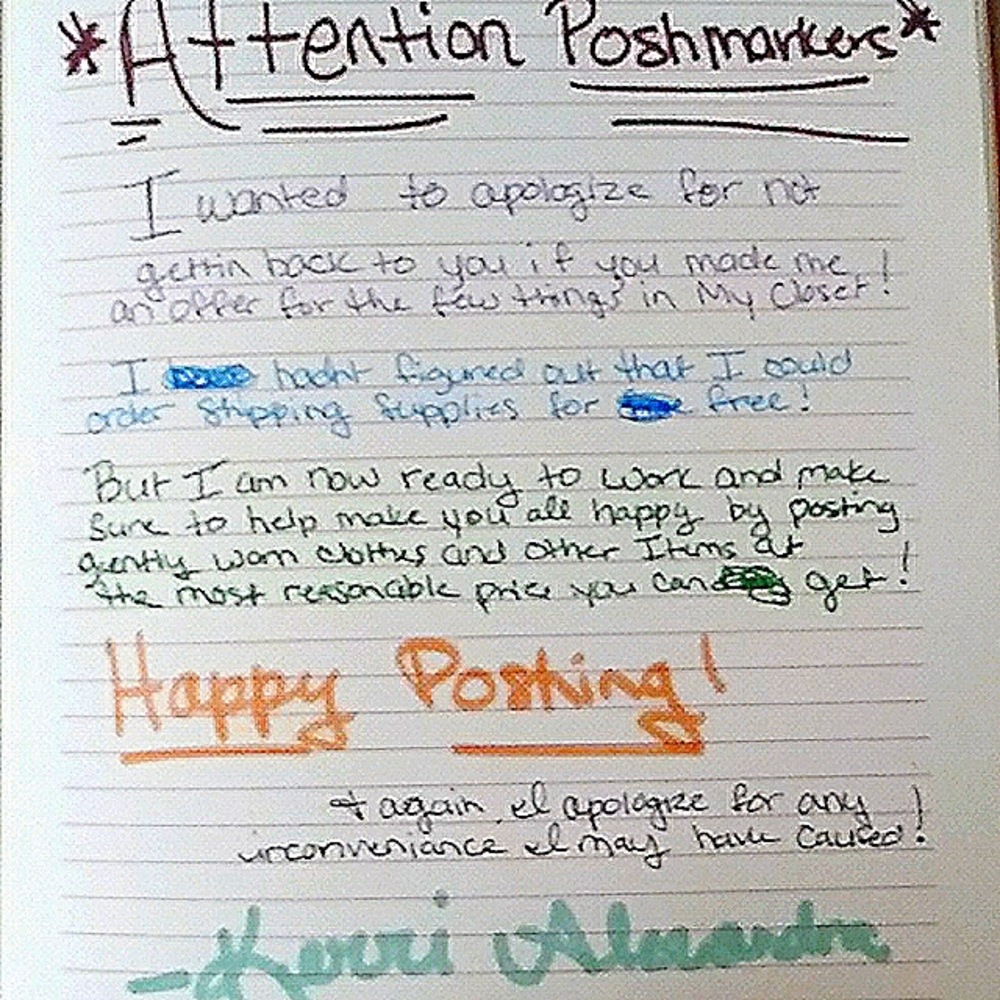 *Attention Poshmarkers*
I wanted to apologize for not
gettin back to you if you made me
an offer for the few things in My Closet!
I hadnt figured out that I could
order shipping supplies for free!
But I am now ready to work and make
sure to help make you all happy by posting
gently worn clothes and other Items at
the most reasonable price you can get!
Happy Poshing!
+ again, I apologize for any
inconveniance I may have caused!
-Kerri Alexandra